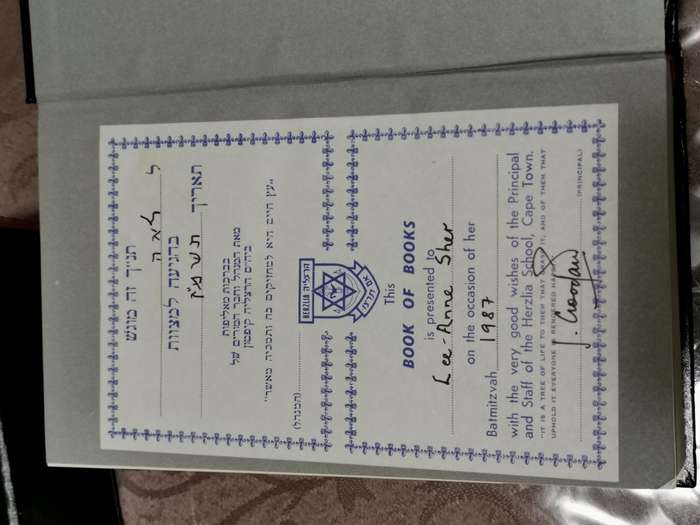 תנ״ך זה מוגש
ל לאה
בהגיעה למצוות
תאריך תשמ״ז
בברכות מאליפות
מאת המנהל וחבר המורים של
ביה״ס הרצליה קיפטון
״עץ חיים היא למחזיקים בה ותמכיה מאשר״
(המנהל)
הרצליה HERZLIA
אם תרצו
This
BOOK OF BOOKS
is presented to
Lee-Anne Sher
on the occasion of her
Batmitzvah 1987
with the very good wishes of the Principal
and Staff of the Herzlia School, Cape Town.
"IT IS A TREE OF LIFE TO THEM THAT GRASP IT, AND OF THEM THAT
UPHOLD IT EVERYONE IS RENDERED HAPPY"
(PRINCIPAL)